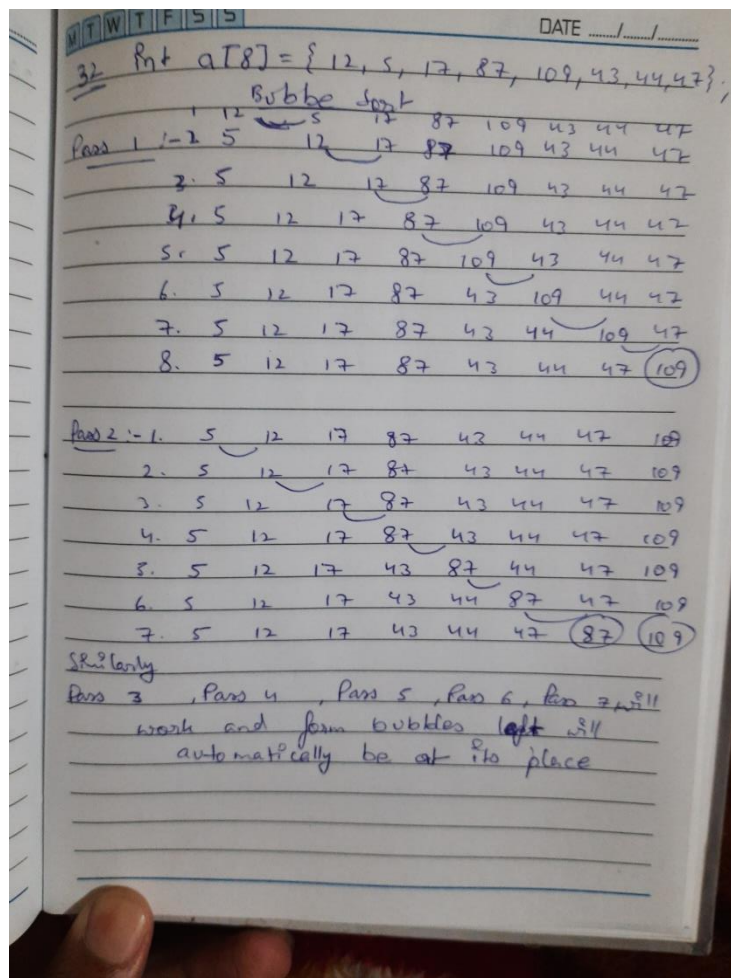 M T W T F S S
DATE ....../....../.........
32 int a[8] = { 12, 5, 17, 87, 109, 43, 44, 47};
Bubbe Sort
1 12 5 17 87 109 43 44 47
Pass 1 :- 2 5 12 17 87 109 43 44 47
3. 5 12 17 87 109 43 44 47
4. 5 12 17 87 109 43 44 47
5. 5 12 17 87 109 43 44 47
6. 5 12 17 87 43 109 44 47
7. 5 12 17 87 43 44 109 47
8. 5 12 17 87 43 44 47 109
Pass 2 :- 1. 5 12 17 87 43 44 47 109
2. 5 12 17 87 43 44 47 109
3. 5 12 17 87 43 44 47 109
4. 5 12 17 87 43 44 47 109
5. 5 12 17 43 87 44 47 109
6. 5 12 17 43 44 87 47 109
7. 5 12 17 43 44 47 87 109
Similarly
Pass 3 , Pass 4 , Pass 5 , Pass 6, Pass 7, will
work and form bubbles left will
automatically be at its place